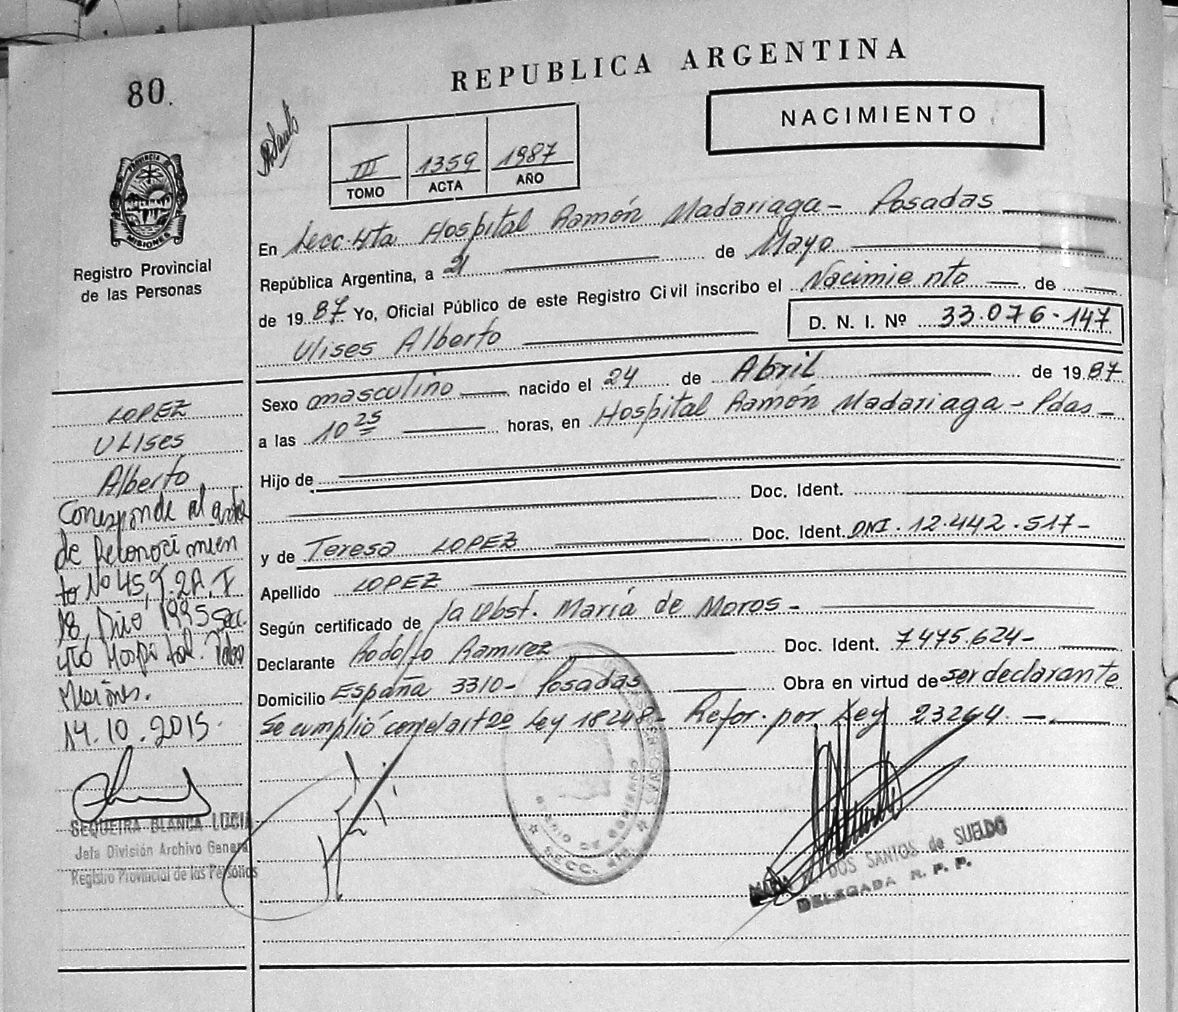 80.
REPUBLICA ARGENTINA
NACIMIENTO
III 1359 1987
TOMO ACTA AÑO
PROVINCIA D
MISIONES
Registro Provincial
de las Personas
En Secc. 4ta Hospital Ramón Madariaga - Posadas
República Argentina, a 21 de Mayo
de 1987 Yo, Oficial Público de este Registro Civil inscribo el Nacimiento de
Ulises Alberto D. N. I. Nº 33.076.147
Sexo masculino nacido el 24 de Abril de 1987
a las 10 25 horas, en Hospital Ramón Madariaga - Pdas -
Hijo de
Doc. Ident.
y de Teresa LOPEZ Doc. Ident. DNI. 12.442.517-
Apellido LOPEZ
Según certificado de la Obst. María de Moros -
Declarante Rodolfo Ramirez Doc. Ident. 7.475.624-
Domicilio España 3310- Posadas Obra en virtud de ser declarante
Se cumplió con el art 20 Ley 18248- Refor. por Ley 23264 -.
LOPEZ
ULISES
Alberto
Corresponde al acta
de Reconocimien
to Nº 45, T. 2A, F
18, Año 1995 Secc.
4ta Hospital.
Misiones.
14.10.2015.
SEQUEIRA BLANCA LUCIA
Jefa División Archivo General
Registro Provincial de las Personas
SECC. 4ta
DOS SANTOS de SUELDO
DELEGADA R. P. P.